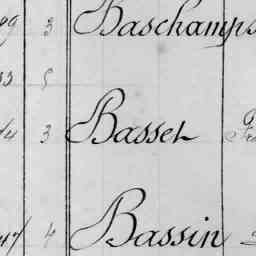 99 3 Baschamps
33 5
14 3 Basset
47 4 Bassin